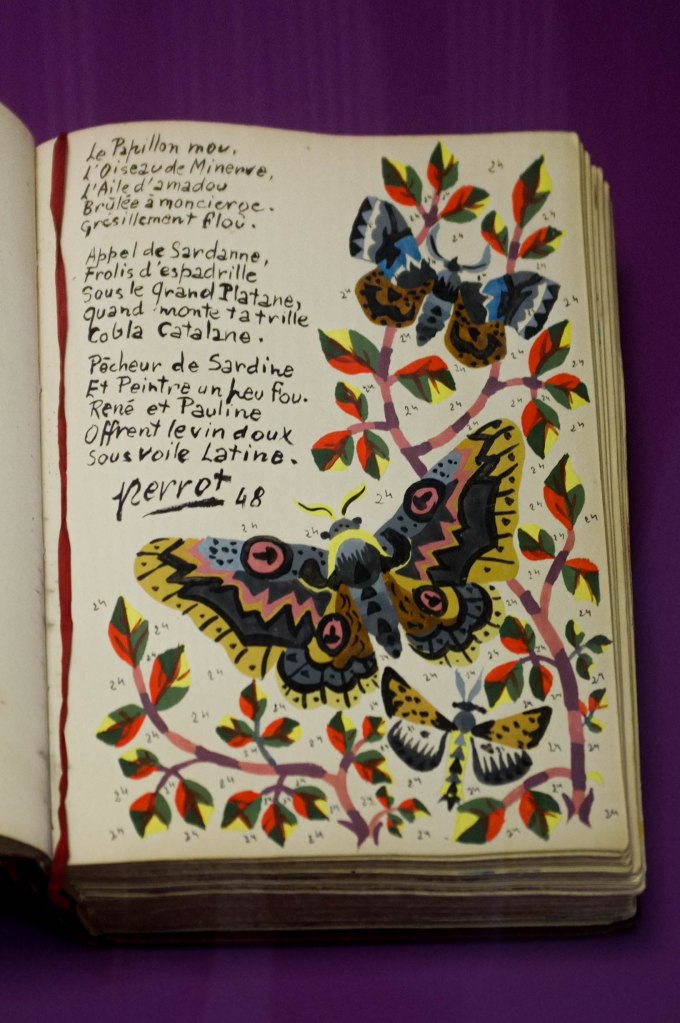 Le Papillon mou.
L'Oiseau de Minerve,
L'Aile d'amadou
Brûlée à moncierge.
Grésillement flou.
Appel de Sardanne,
Frolis d'espadrille
Sous le grand Platane,
quand monte ta trille
Cobla Catalane.
Pêcheur de Sardine
Et Peintre un peu fou.
René et Pauline
Offrent le vin doux
Sous voile Latine.
Perrot 48